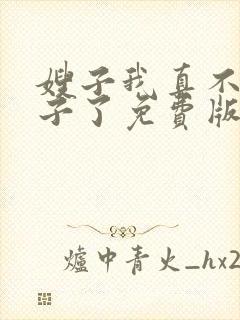 嫂子我真不
子了免费版
爐中青火_hx2